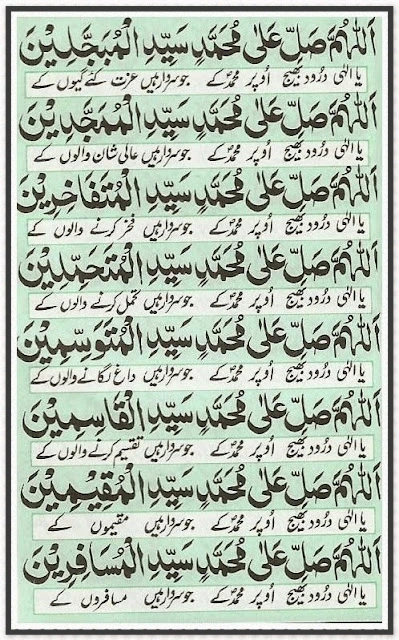 اَللّٰهُمَّ صَلِّ عَلٰى مُحَمَّدٍ سَيِّدِ الْمُبَجَّلِيْنَ
یا الٰہی درود بھیج اُوپر محمدؐ کے جو سردار ہیں عزت کئے گیوں کے
اَللّٰهُمَّ صَلِّ عَلٰى مُحَمَّدٍ سَيِّدِ الْمُمَجَّدِيْنَ
یا الٰہی درود بھیج اُوپر محمدؐ کے جو سردار ہیں عالی شان والوں کے
اَللّٰهُمَّ صَلِّ عَلٰى مُحَمَّدٍ سَيِّدِ الْمُتَفَاخِرِيْنَ
یا الٰہی درود بھیج اُوپر محمدؐ کے جو سردار ہیں فخر کرنے والوں کے
اَللّٰهُمَّ صَلِّ عَلٰى مُحَمَّدٍ سَيِّدِ الْمُتَحَمِّلِيْنَ
یا الٰہی درود بھیج اُوپر محمدؐ کے جو سردار ہیں تحمل کرنے والوں کے
اَللّٰهُمَّ صَلِّ عَلٰى مُحَمَّدٍ سَيِّدِ الْمُتَوَسِّمِيْنَ
یا الٰہی درود بھیج اُوپر محمدؐ کے جو سردار ہیں داغ لگانے والوں کے
اَللّٰهُمَّ صَلِّ عَلٰى مُحَمَّدٍ سَيِّدِ الْقَاسِمِيْنَ
یا الٰہی درود بھیج اُوپر محمدؐ کے جو سردار ہیں تقسیم کرنے والوں کے
اَللّٰهُمَّ صَلِّ عَلٰى مُحَمَّدٍ سَيِّدِ الْمُقِيْمِيْنَ
یا الٰہی درود بھیج اُوپر محمدؐ کے جو سردار ہیں مقیموں کے
اَللّٰهُمَّ صَلِّ عَلٰى مُحَمَّدٍ سَيِّدِ الْمُسَافِرِيْنَ
یا الٰہی درود بھیج اُوپر محمدؐ کے جو سردار ہیں مسافروں کے